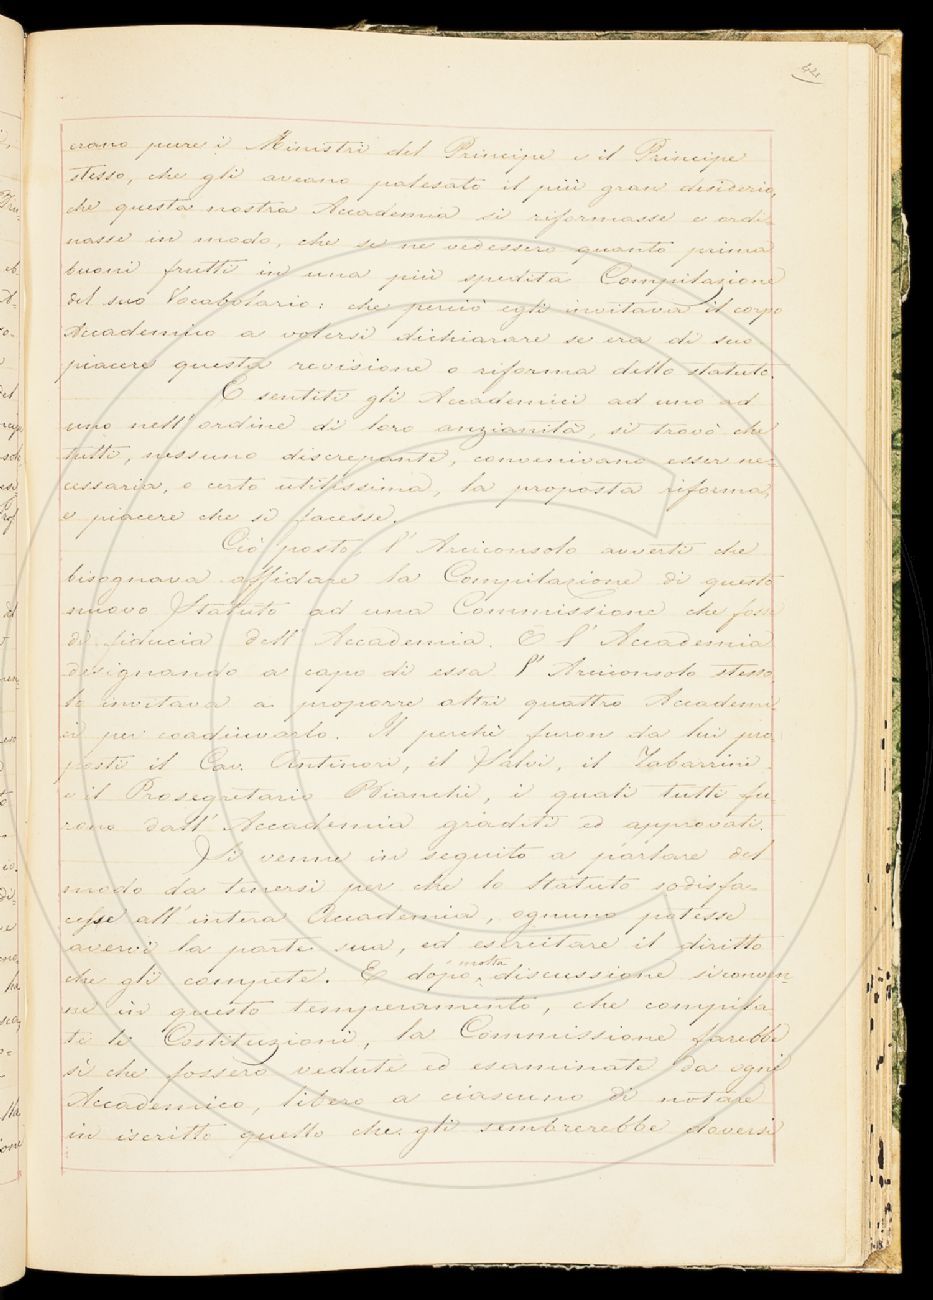 44
erano pure i Ministri del Principe e il Principe
stesso, che gli aveano palesato il più gran desiderio,
che questa nostra Accademia si riformasse e ordi-
nasse in modo, che se ne vedessero quanto prima
buoni frutti in una più spedita Compilazione
del suo Vocabolario: che perciò egli invitava il corpo
Accademico a volersi dichiarare se era di suo
piacere questa revisione o riforma dello statuto.
E sentiti gli Accademici ad uno ad
uno nell'ordine di loro anzianità, si trovò che
tutti, nessuno discrepante, convenivano esser ne-
cessaria, o certo utilissima, la proposta riforma,
e piacere che si facesse.
Ciò posto, l'Arciconsolo avvertì che
bisognava affidare la Compilazione di questo
nuovo Statuto ad una Commissione che fosse
di fiducia dell'Accademia. E l'Accademia
designando a capo di essa l'Arciconsolo stesso,
lo invitava a proporre altri quattro Accademi-
ci per coadiuvarlo. Il perchè furon da lui pro-
posti il Cav. Antinori, il Salvi, il Tabarrini
e il Prosegretario Bianchi, i quali tutti fu-
rono dall'Accademia graditi ed approvati.
Si venne in seguito a parlare del
modo da tenersi per che lo Statuto sodisfa-
cesse all'intera Accademia, ognuno potesse
avervi la parte sua, ed esercitare il diritto
che gli compete. E dopo molta discussione si conven-
ne in questo temperamento, che compila-
te le Costituzioni, la Commissione farebbe
sì che fossero vedute ed esaminate da ogni
Accademico, libero a ciascuno di notare
in iscritto quello che gli sembrerebbe doversi